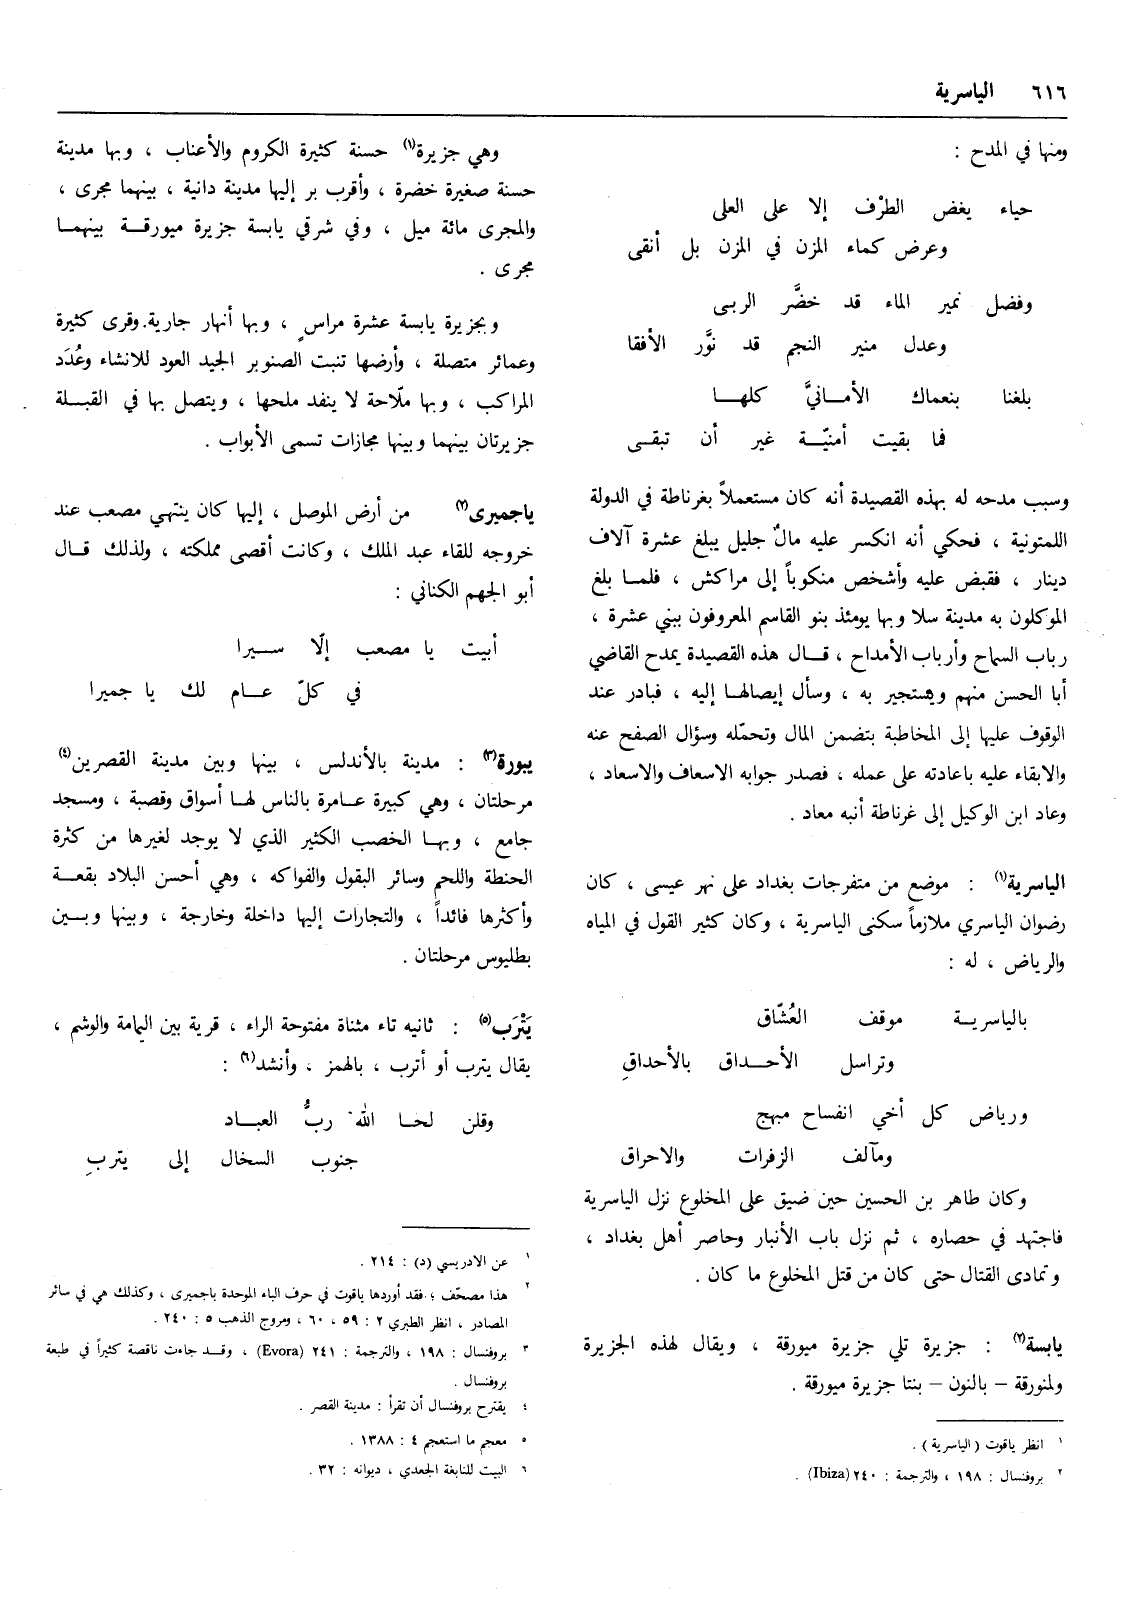 ٦١٦ الياسرية
ومنها في المدح :
حياء يغض الطرْف إلا على العلى
وعرض كماء المزن في المزن بل أنقى
وفضل نمير الماء قد خضَّر الربى
وعدل منير النجم قد نوَّر الأفقا
بلغنا بنعماك الأمـانيَّ كلهـا
فما بقيت أمنيّـة غير أن تبقـى
وسبب مدحه له بهذه القصيدة أنه كان مستعملاً بغرناطة في الدولة
اللمتونية ، فحكي أنه انكسر عليه مالٌ جليل يبلغ عشرة آلاف
دينار ، فقبض عليه وأشخص منكوباً إلى مراكش ، فلمـا بلغ
الموكلون به مدينة سلا وبها يومئذ بنو القاسم المعروفون ببني عشرة ،
رباب السماح وأرباب الأمداح ، قـال هذه القصيدة يمدح القاضي
أبا الحسن منهم ويستجير به ، وسأل إيصالهـا إليه ، فبادر عند
الوقوف عليها إلى المخاطبة بتضمن المال وتحمّله وسؤال الصفح عنه
والابقاء عليه باعادته على عمله ، فصدر جوابه الاسعاف والاسعاد ،
وعاد ابن الوكيل إلى غرناطة أنبه معاد .
الياسرية(١) : موضع من متفرجات بغداد على نهر عيسى ، كان
رضوان الياسري ملازماً سكنى الياسرية ، وكان كثير القول في المياه
والرياض ، له :
بالياسريـة موقف العُشّاق
وتراسل الأحـداق بالأحداقِ
ورياض كل أخي انفساح مبهج
ومآلف الزفرات والاحراق
وكان طاهر بن الحسين حين ضيق على المخلوع نزل الياسرية
فاجتهد في حصاره ، ثم نزل باب الأنبار وحاصر أهل بغداد ،
وتمادى القتال حتى كان من قتل المخلوع ما كان .
يابسة(٢) : جزيرة تلي جزيرة ميورقة ، ويقال لهذه الجزيرة
ولمنورقة – بالنون – بنتا جزيرة ميورقة .
١ انظر ياقوت ( الياسرية ) .
٢ بروفنسال : ١٩٨ ، والترجمة : ٢٤٠ (Ibiza) .
وهي جزيرة(١) حسنة كثيرة الكروم والأعناب ، وبها مدينة
حسنة صغيرة خضرة ، وأقرب بر إليها مدينة دانية ، بينهما مجرى ،
والمجرى مائة ميل ، وفي شرقي يابسة جزيرة ميورقـة بينهمـا
مجرى .
وبجزيرة يابسة عشرة مراسٍ ، وبها أنهار جارية.وقرى كثيرة
وعمائر متصلة ، وأرضها تنبت الصنوبر الجيد العود للانشاء وعُدَد
المراكب ، وبها ملّاحة لا ينفد ملحها ، ويتصل بها في القبـلة
جزيرتان بينهما وبينها مجازات تسمى الأبواب .
ياجميرى(٢) من أرض الموصل ، إليها كان ينتهي مصعب عند
خروجه للقاء عبد الملك ، وكانت أقصى مملكته ، ولذلك قـال
أبو الجهم الكناني :
أبيت يا مصعب إلّا سـيرا
في كلّ عـام لك يا جميرا
يبورة(٣) : مدينة بالأندلس ، بينها وبين مدينة القصرين(٤)
مرحلتان ، وهي كبيرة عـامرة بالناس لهـا أسواق وقصبة ، ومسجد
جامع ، وبهـا الخصب الكثير الذي لا يوجد لغيرها من كثرة
الحنطة واللحم وسائر البقول والفواكه ، وهي أحسن البلاد بقعـة
وأكثرها فائداً ، والتجارات إليها داخلة وخارجة ، وبينها وبـين
بطليوس مرحلتان .
يَتْرَب(٥) : ثانيه تاء مثناة مفتوحة الراء ، قرية بين اليمامة والوشم ،
يقال يترب أو أترب ، بالهمز ، وأنشد(٦) :
وقلن لحـا الله ربُّ العبـاد
جنوب السخال إلى يتربِ
١ عن الادريسي (د) : ٢١٤ .
٢ هذا مصحّف ؛ فقد أوردها ياقوت في حرف الباء الموحدة باجميرى ، وكذلك هي في سائر
المصادر ، انظر الطبري ٢ : ٥٩ ، ٦٠ ، ومروج الذهب ٥ : ٢٤٠ .
٣ بروفنسال : ١٩٨ ، والترجمة : ٢٤١ (Evora) ، وقـد جاءت ناقصة كثيراً في طبعة
بروفنسال .
٤ يقترح بروفنسال أن تقرأ : مدينة القصر .
٥ معجم ما استعجم ٤ : ١٣٨٨ .
٦ البيت للنابغة الجعدي ، ديوانه : ٣٢ .